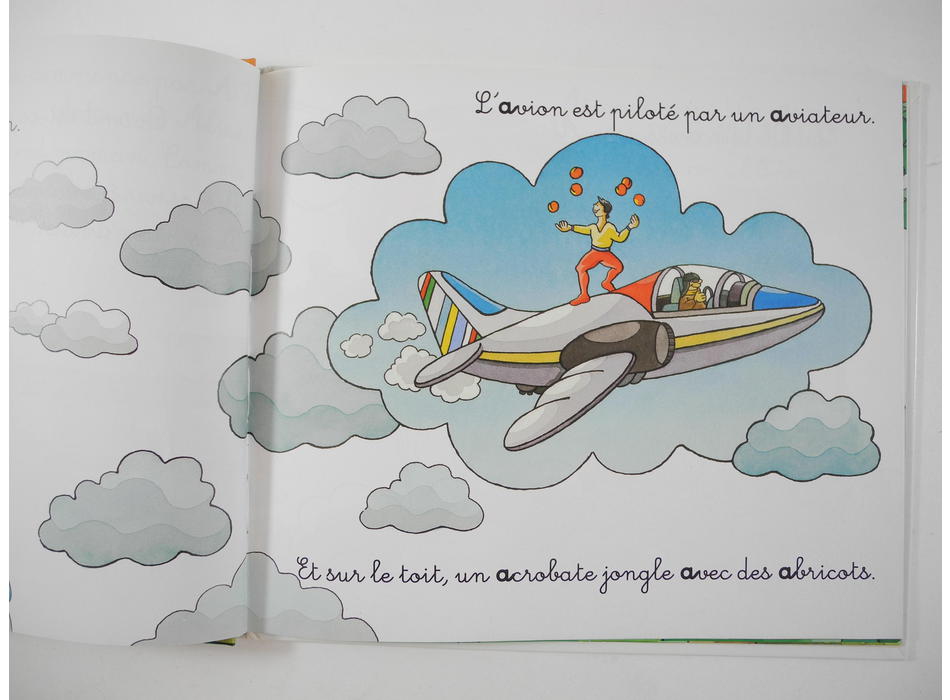 L'avion est piloté par un aviateur.
Et sur le toit, un acrobate jongle avec des abricots.